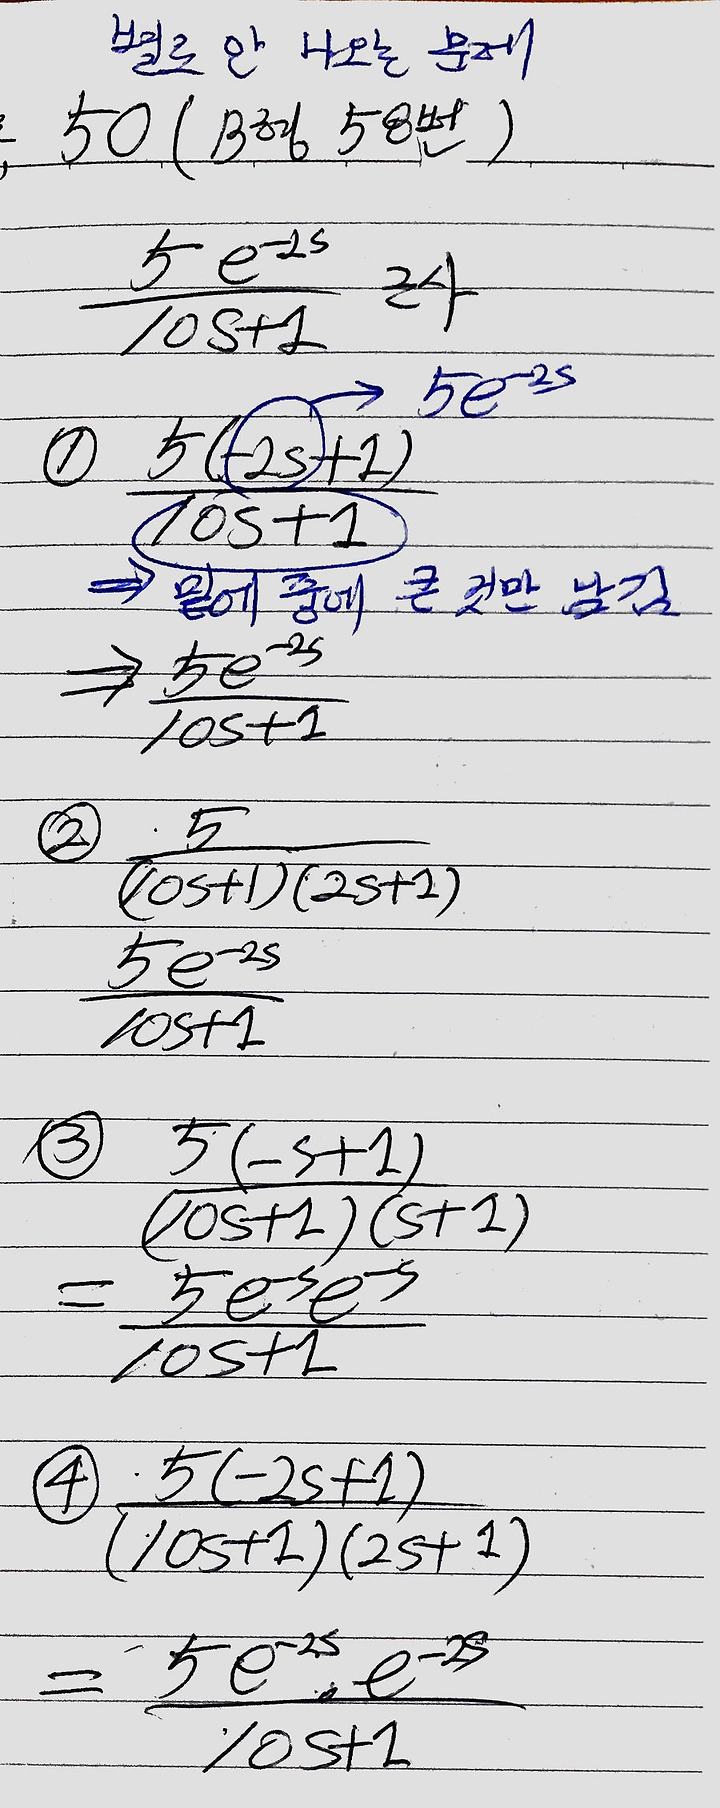 별로 안 나오는 문제
50 (B형 58번)
5e^-2s / 10s+1 근사
① 5(-2s+1) / 10s+1 → 5e^-2s
⇒ 밑에 중에 큰 것만 남김
⇒ 5e^-2s / 10s+1
② 5 / (10s+1)(2s+1)
5e^-2s / 10s+1
③ 5(-s+1) / (10s+1)(s+1)
= 5e^-s e^-s / 10s+1
④ 5(-2s+1) / (10s+1)(2s+1)
= 5e^-2s · e^-2s / 10s+1